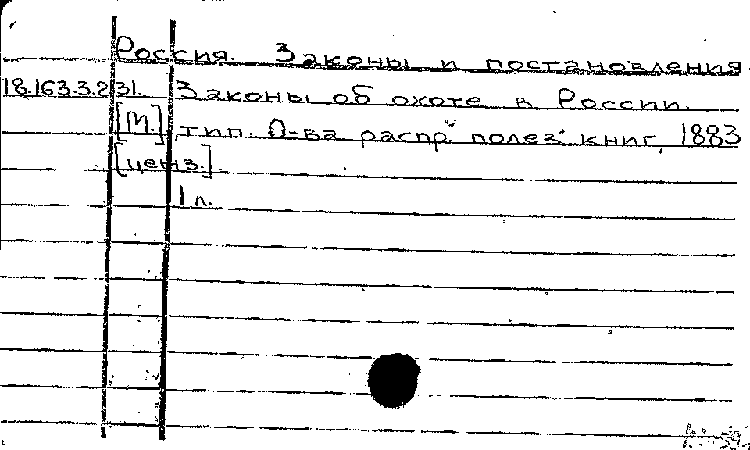 Россия. Законы и постановления
18.163.3.231. Законы об охоте в России.
[М.] тип. О-ва распр. полез. книг, 1883
[ценз.]
1 л.